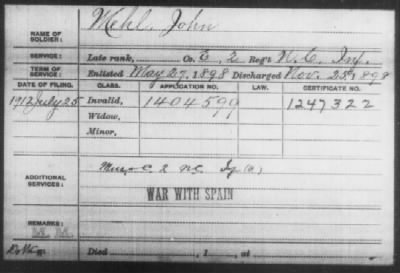 Mehl, John
NAME OF SOLDIER:
SERVICE: Late rank, Co. E, 2 Reg't N.C. Inf.
TERM OF SERVICE: Enlisted May 27, 1898 Discharged Nov. 25, 1898
DATE OF FILING. CLASS. APPLICATION NO. LAW. CERTIFICATE NO.
1912 July 25 Invalid, 1404599 1247322
Widow,
Minor,
ADDITIONAL SERVICES: C. 2 N.C.
WAR WITH SPAIN
REMARKS:
M. M.
Died , 1 , at